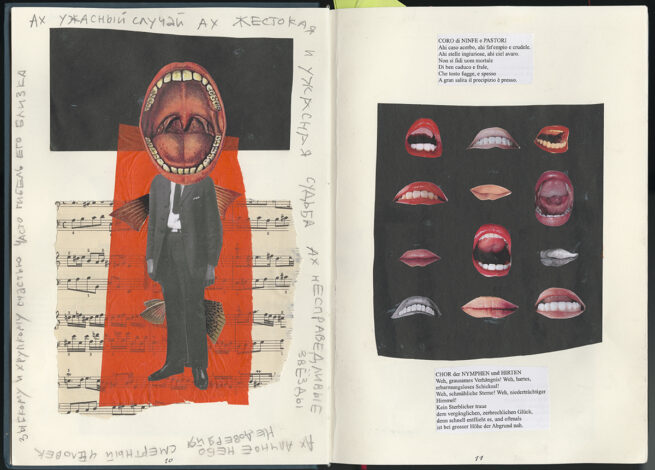 АХ УЖАСНЫЙ СЛУЧАЙ АХ ЖЕСТОКАЯ
И УЖАСНАЯ СУДЬБА АХ НЕСПРАВЕДЛИВЫЕ
ЗВЁЗДЫ
АХ АЛЧНОЕ НЕБО
НЕ ДОВЕРЯЙ СМЕРТНЫЙ ЧЕЛОВЕК
ЗЫБКОМУ И ХРУПКОМУ СЧАСТЬЮ ЧАСТО ГИБЕЛЬ ЕГО БЛИЗКА
10
CORO di NINFE e PASTORI
Ahi caso acerbo, ahi fat'empio e crudele.
Ahi stelle ingiuriose, ahi ciel avaro.
Non si fidi uom mortale
Di ben caduco e frale,
Che tosto fugge, e spesso
A gran salita il precipizio è presso.
CHOR der NYMPHEN und HIRTEN
Weh, grausames Verhängnis! Weh, hartes,
erbarmungsloses Schicksal!
Weh, schmähliche Sterne! Weh, niederträchtiger
Himmel!
Kein Sterblicher traue
dem vergänglichen, zerbrechlichen Glück,
denn schnell entflieht es, und oftmals
ist bei grosser Höhe der Abgrund nah.
11